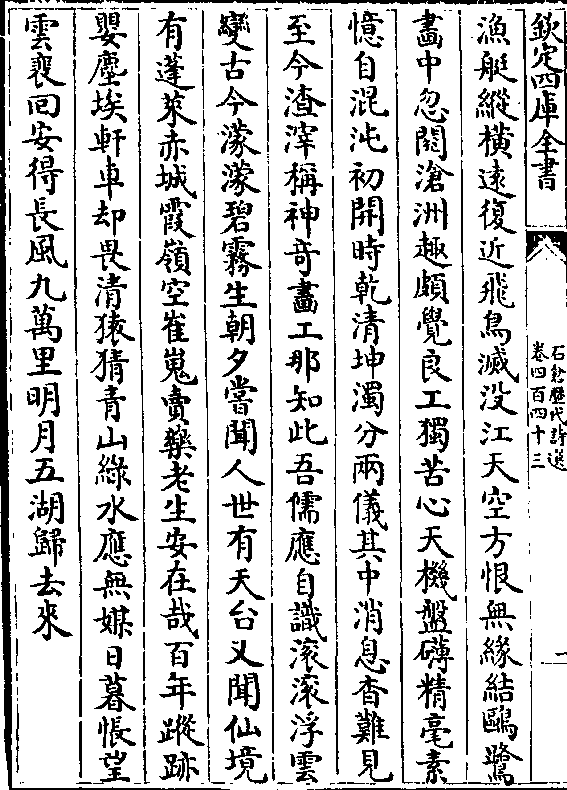 欽定四庫全書
石倉歷代詩選
卷四百四十三
漁艇縱橫遠復近飛鳥滅没江天空方恨無緣結鷗鷺
畫中忽閱滄洲趣頗覺良工獨苦心天機盤礴精毫素
憶自混沌初開時乾清坤濁分兩儀其中消息杳難見
至今渣滓稱神竒畫工那知此吾儒應自識滚滚浮雲
變古今濛濛碧霧生朝夕嘗聞人世有天台又聞仙境
有蓬萊赤城霞嶺空崔嵬賣藥老生安在哉百年蹤跡
嬰塵埃軒車却畏清猿猜青山綠水應無媒日暮悵望
雲裵回安得長風九萬里明月五湖歸去來